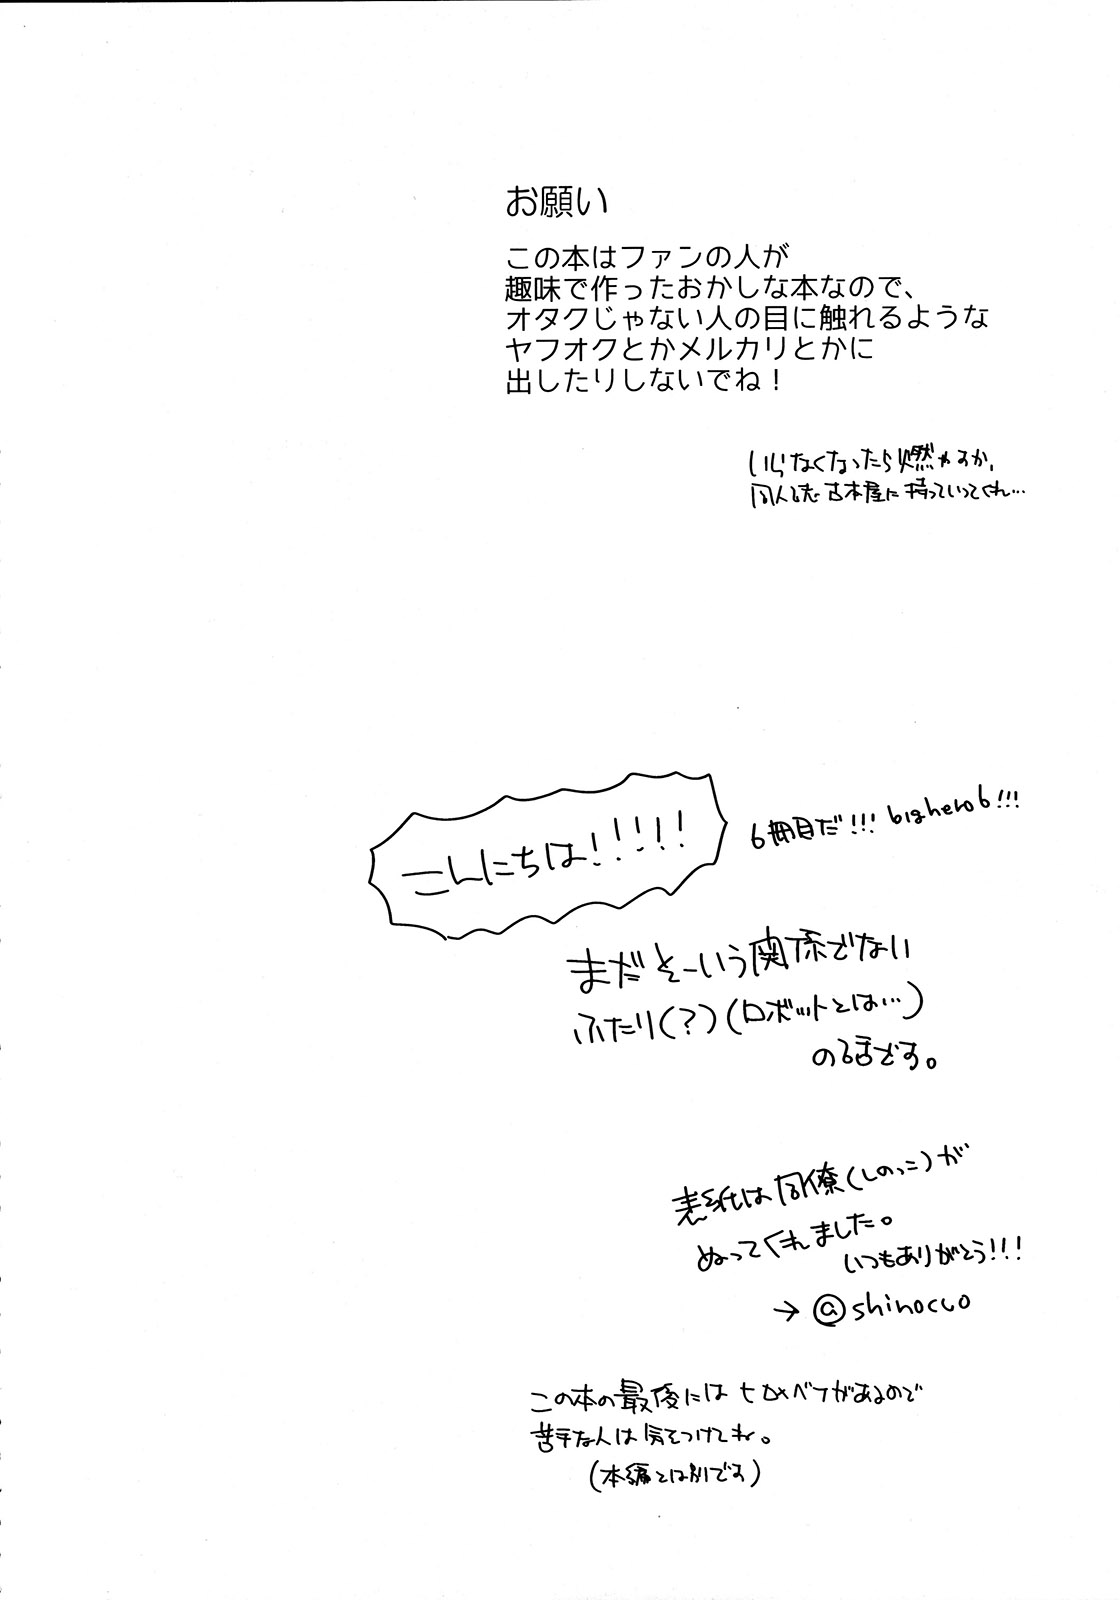 お願い
この本はファンの人が
趣味で作ったおかしな本なので、
オタクじゃない人の目に触れるような
ヤフオクとかメルカリとかに
出したりしないでね！
いらなくなったら燃やすか、
同人誌古本屋に持っていってくれ…
こんにちは!!!!!
6冊目だ!!! bighero6!!!
まだそーいう関係でない
ふたり(?)(ロボットとは…)
の話です。
表紙は同僚(しのっこ)が
ぬってくれました。
いつもありがとう!!!
→ @shinocco
この本の最後にはヒロ×ベマがあるので
苦手な人は気をつけてね。
(本編とは別です)